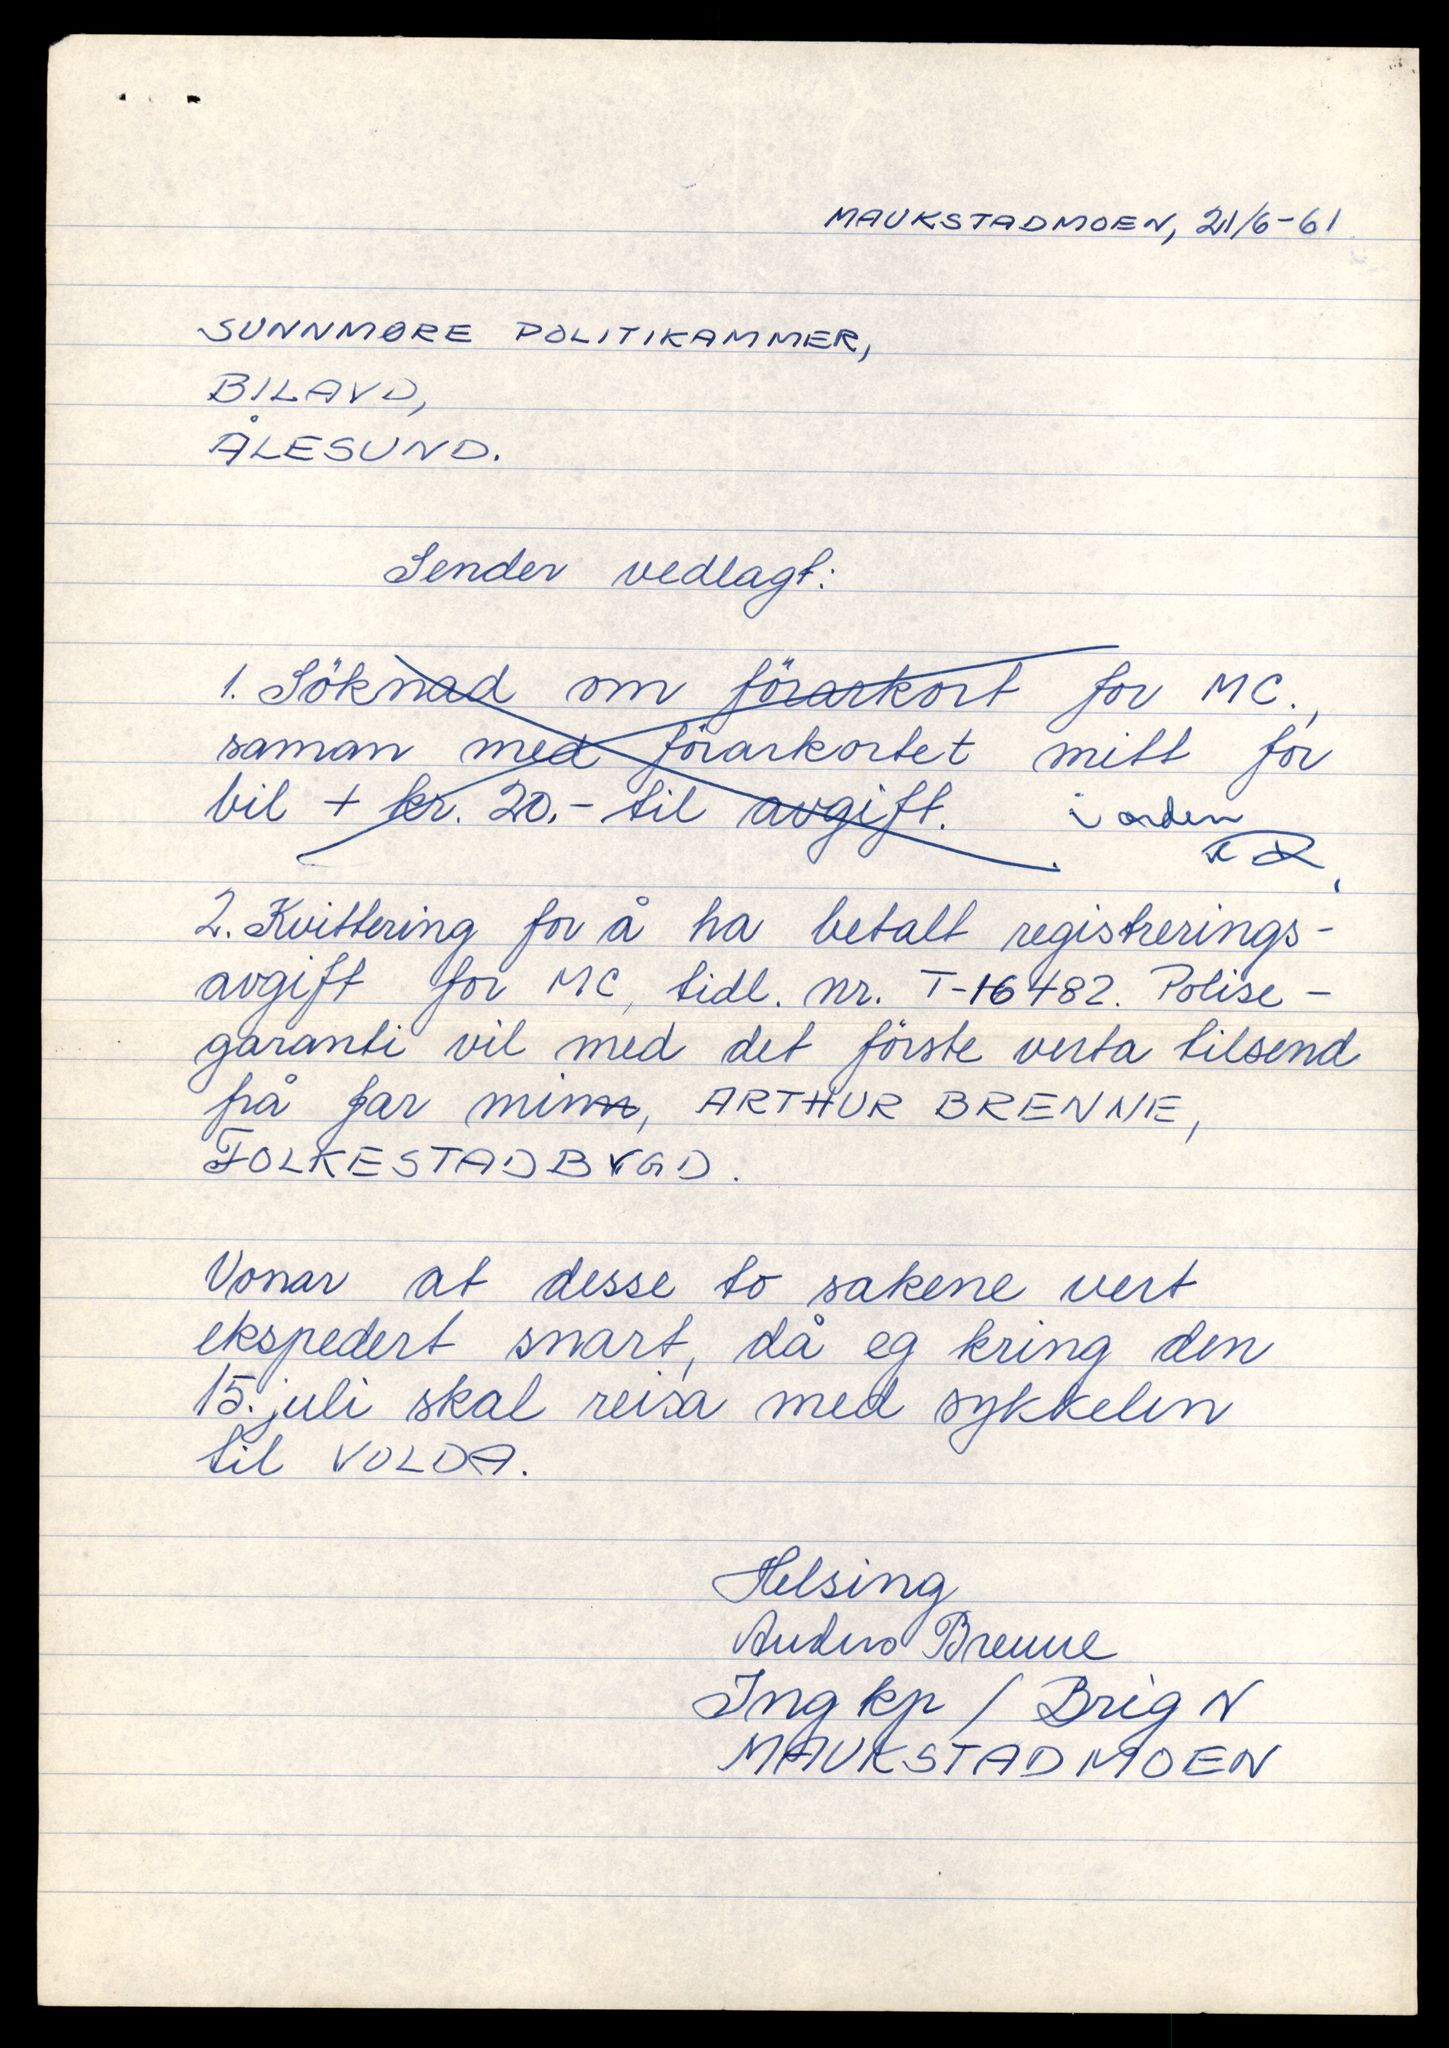 MAUKSTADMOEN, 21/6-61
SUNNMØRE POLITIKAMMER,
BILAVD,
ÅLESUND.
Sender vedlagt:
1. Söknad om förarkort for MC.,
saman med förarkortet mitt for
bil + kr. 20.- til avgift. i orden
2. Kvittering for å ha betalt registrerings-
avgift for MC, tidl. nr. T-16482. Polise-
garanti vil med det förste verta tilsend
frå far min, ARTHUR BRENNE,
FOLKESTADBYGD.
Vonar at desse to sakene vert
ekspedert snart, då eg kring den
15. juli skal reisa med sykkelen
til VOLDA.
Helsing
Anders Brenne
Ing kp / Brig N
MAUKSTADMOEN